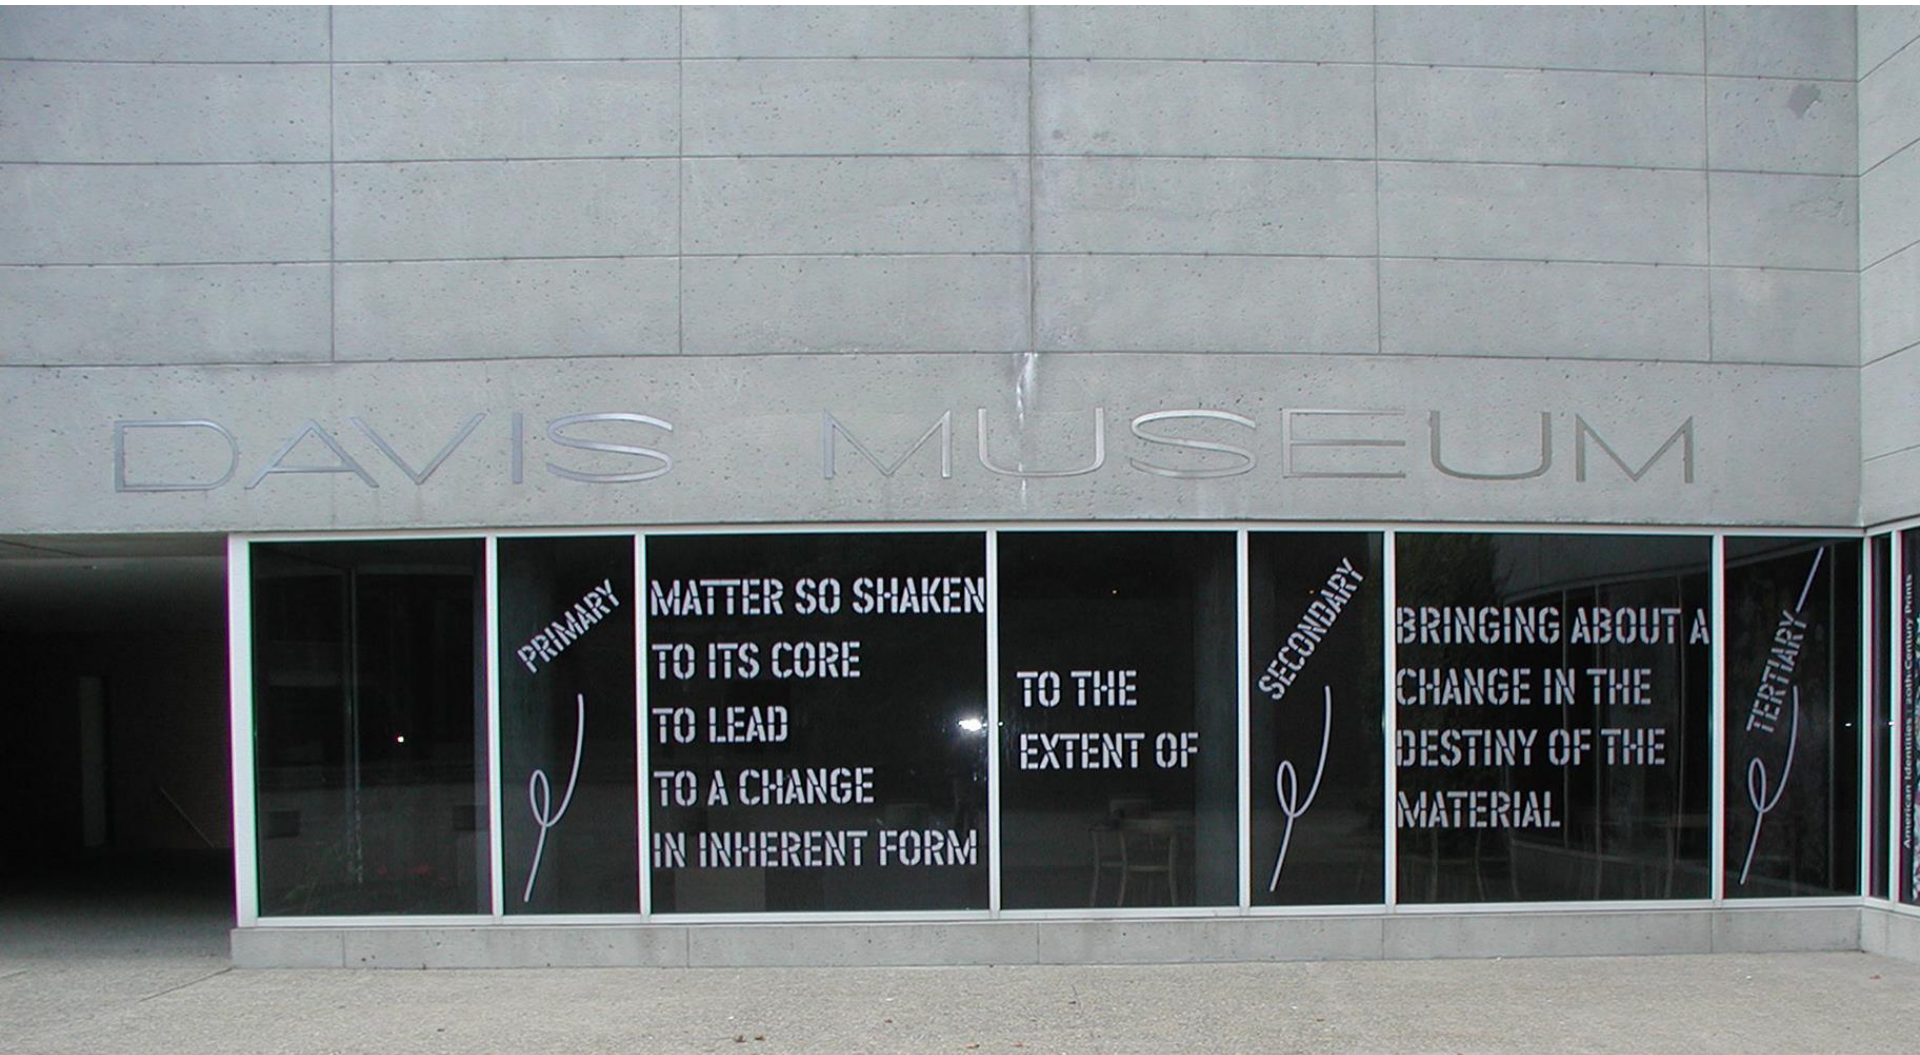 DAVIS MUSEUM
PRIMARY
MATTER SO SHAKEN
TO ITS CORE
TO LEAD
TO A CHANGE
IN INHERENT FORM
TO THE
EXTENT OF
SECONDARY
BRINGING ABOUT A
CHANGE IN THE
DESTINY OF THE
MATERIAL
TERTIARY
American Identities: 20th-Century Prints